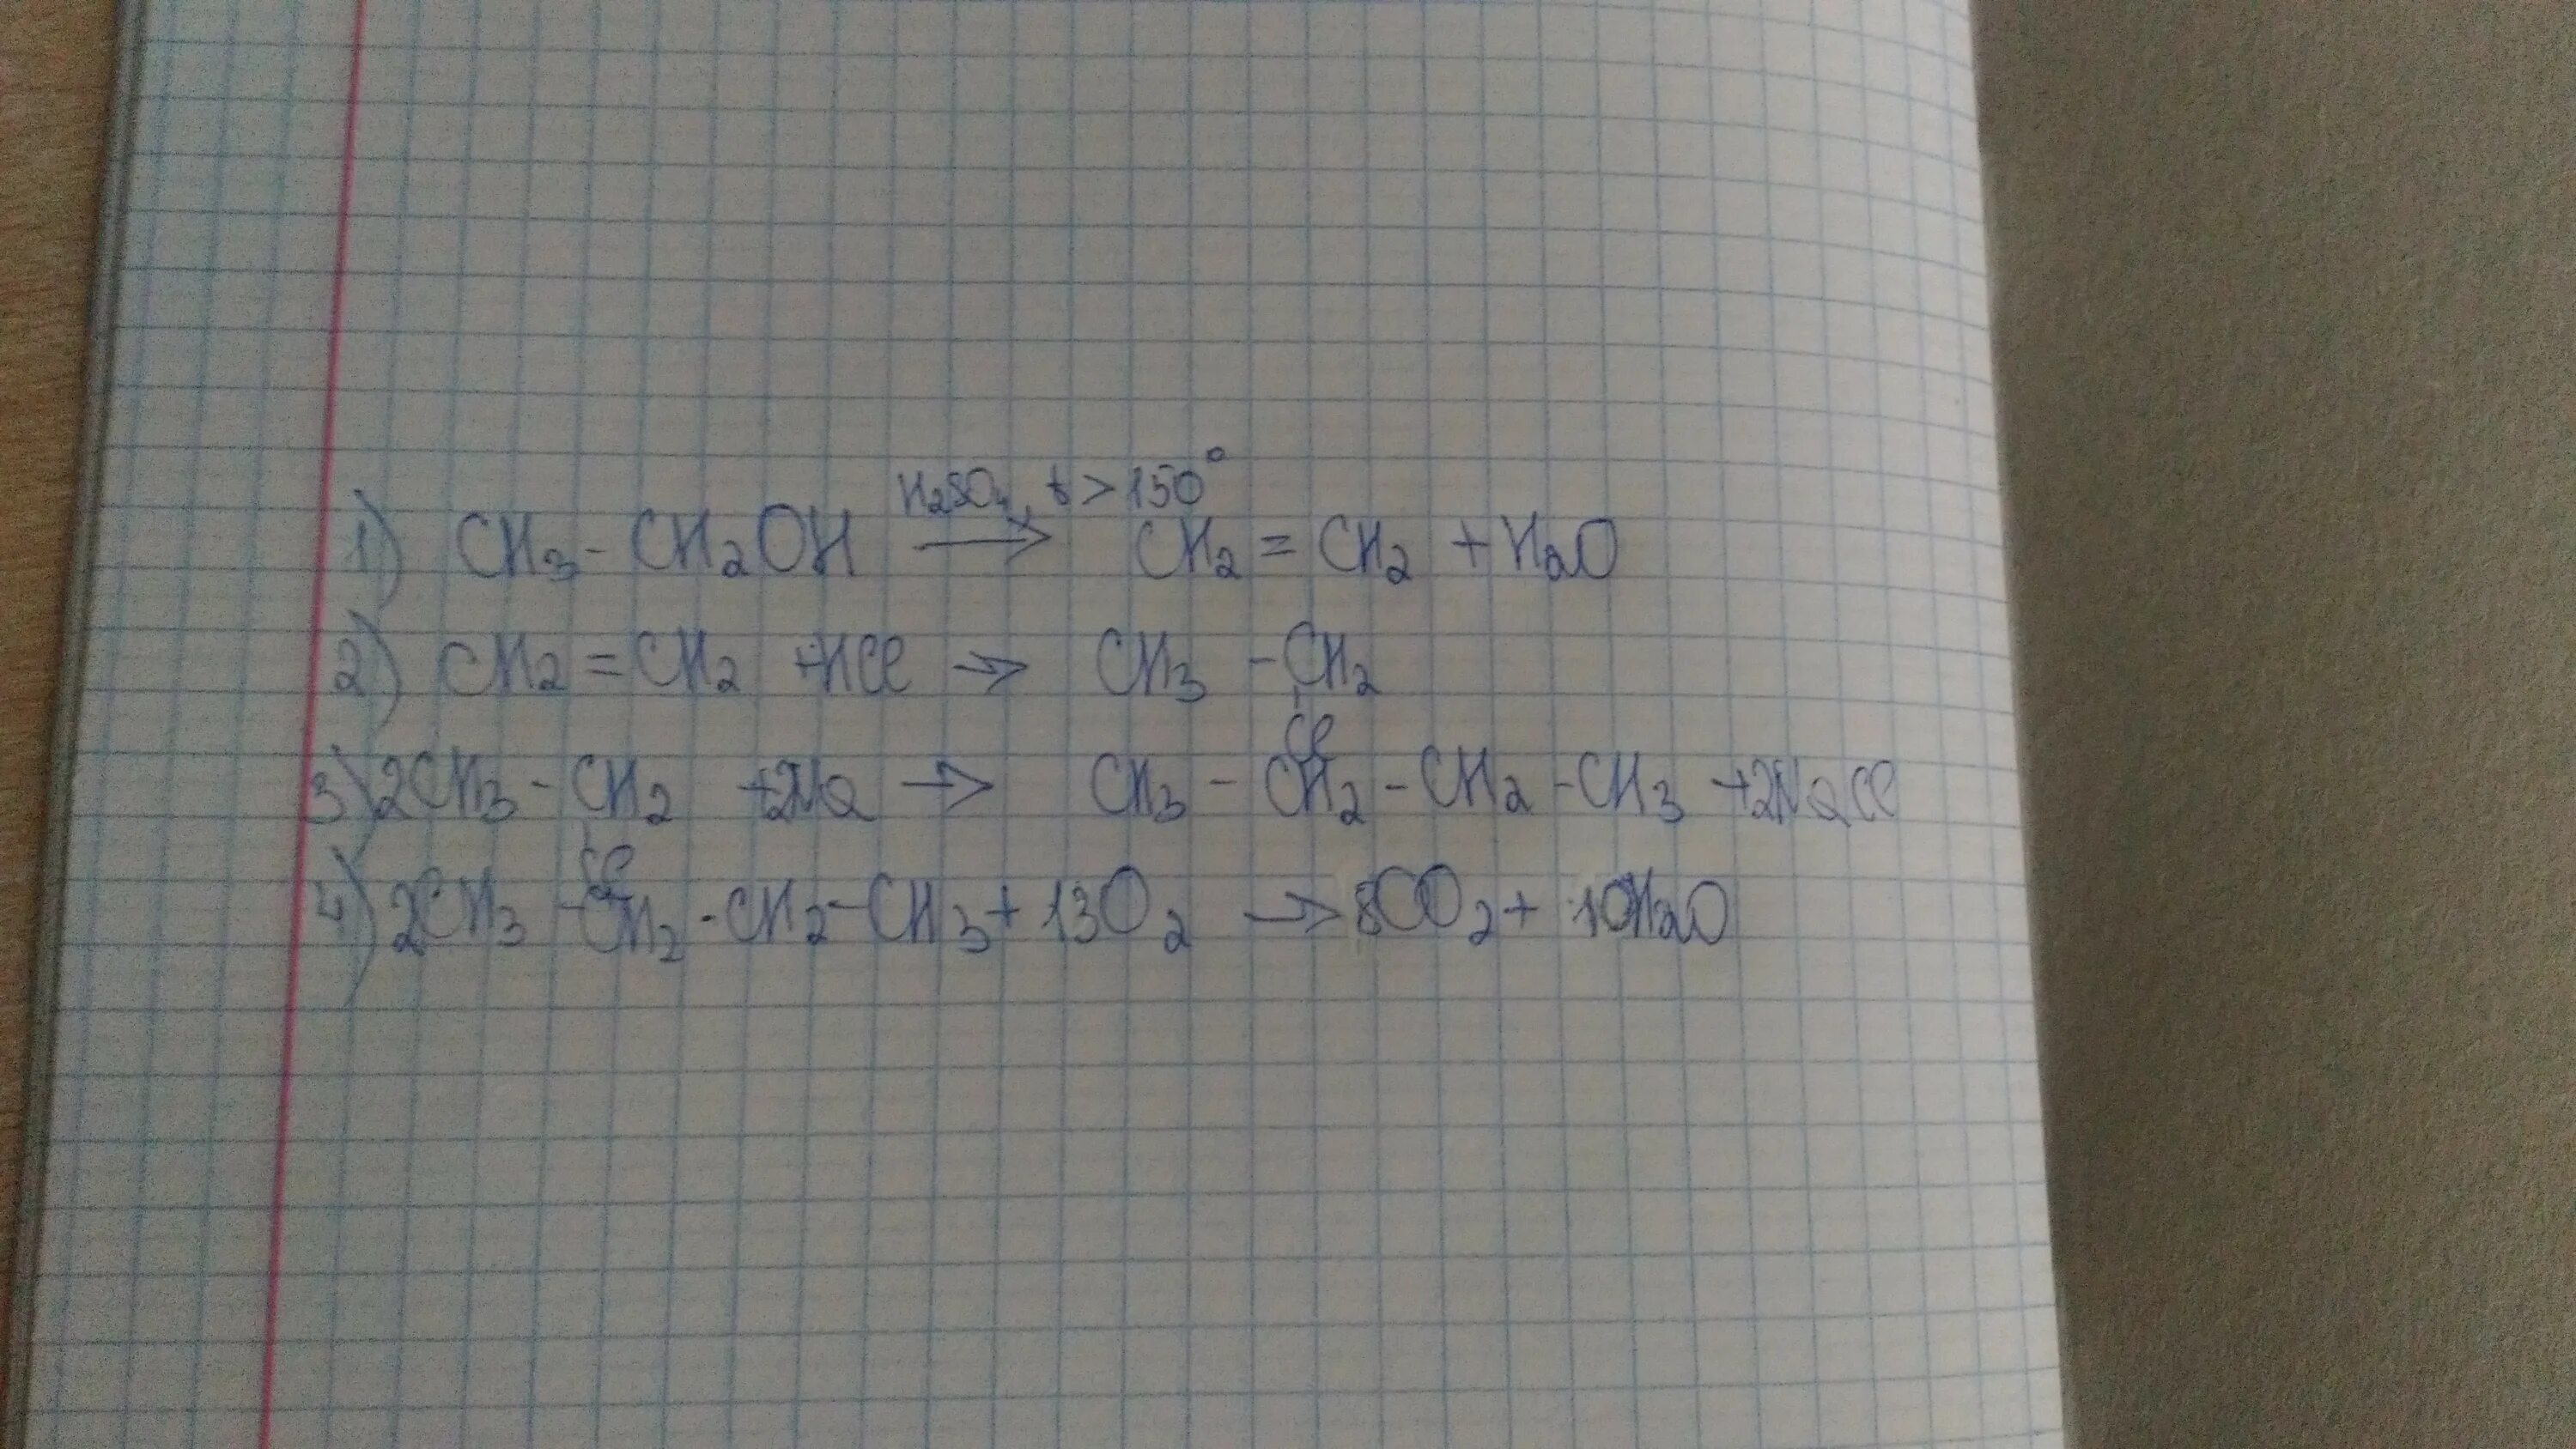 H₂SO₄, t > 150°
1) CH₃ - CH₂OH → CH₂ = CH₂ + H₂O
2) CH₂ = CH₂ + HCl → CH₃ - CH₂
Cl
3) 2CH₃ - CH₂ + 2Na → CH₃ - CH₂ - CH₂ - CH₃ + 2NaCl
Cl
4) 2CH₃ - CH₂ - CH₂ - CH₃ + 13O₂ → 8CO₂ + 10H₂O